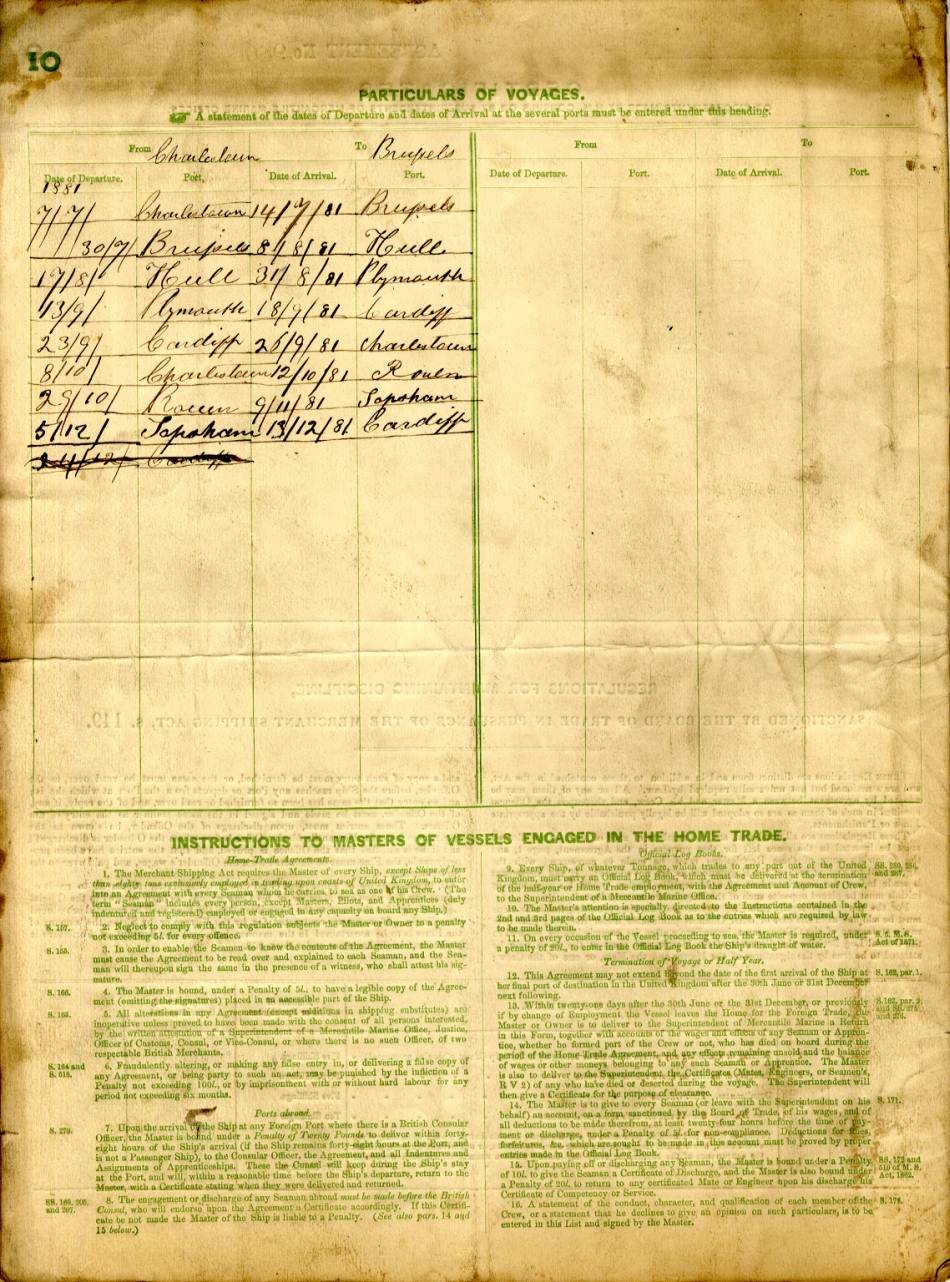 10
PARTICULARS OF VOYAGES.
A statement of the dates of Departure and dates of Arrival at the several ports must be entered under this heading.
From Charlestown To Brussels From To
Date of Departure. Port. Date of Arrival. Port. Date of Departure. Port. Date of Arrival. Port.
1881
7/7/ Charlestown 14/7/81 Brussels
30/7/ Brussels 8/8/81 Hull
17/8/ Hull 31/8/81 Plymouth
13/9/ Plymouth 18/9/81 Cardiff
23/9/ Cardiff 26/9/81 Charlestown
8/10/ Charlestown 12/10/81 Rouen
29/10/ Rouen 9/11/81 Topsham
5/12/ Topsham 13/12/81 Cardiff
INSTRUCTIONS TO MASTERS OF VESSELS ENGAGED IN THE HOME TRADE.
Home-Trade Agreements.
1. The Merchant Shipping Act requires the Master of every Ship, except Ships of less
than eighty tons exclusively employed in trading upon coasts of United Kingdom, to enter
into an Agreement with every Seaman whom he carries to sea as one of his Crew. (The
term "Seaman" includes every person, except Masters, Pilots, and Apprentices (duly
indentured and registered) employed or engaged in any capacity on board any Ship.)
S. 157. 2. Neglect to comply with this regulation subjects the Master or Owner to a penalty
not exceeding 5l. for every offence.
S. 155. 3. In order to enable the Seamen to know the contents of the Agreement, the Master
must cause the Agreement to be read over and explained to each Seaman, and the Sea-
man will thereupon sign the same in the presence of a witness, who shall attest his sig-
nature.
S. 166. 4. The Master is bound, under a Penalty of 5l., to have a legible copy of the Agree-
ment (emitting the signatures) placed in an accessible part of the Ship.
S. 163. 5. All alterations in any Agreement (except additions in shipping substitutes) are
inoperative unless proved to have been made with the consent of all persons interested,
by the written attestation of a Superintendent of a Mercantile Marine Office, Justice,
Officer of Customs, Consul, or Vice-Consul, or where there is no such Officer, of two
respectable British Merchants.
S. 164 and S. 518. 6. Fraudulently altering, or making any false entry in, or delivering a false copy of
any Agreement, or being party to such an act, may be punished by the infliction of a
Penalty not exceeding 100l., or by imprisonment with or without hard labour for any
period not exceeding six months.
Ports abroad.
S. 279. 7. Upon the arrival of the Ship at any Foreign Port where there is a British Consular
Officer, the Master is bound under a Penalty of Twenty Pounds to deliver within forty-
eight hours of the Ship's arrival (if the Ship remains forty-eight hours at the Port, and
is not a Passenger Ship), to the Consular Officer, the Agreement, and all Indentures and
Assignments of Apprenticeships. These the Consul will keep during the Ship's stay
at the Port, and will, within a reasonable time before the Ship's departure, return to the
Master, with a Certificate stating when they were delivered and returned.
SS. 160, 205, and 207. 8. The engagement or discharge of any Seaman abroad must be made before the British
Consul, who will endorse upon the Agreement a Certificate accordingly. If this Certifi-
cate be not made the Master of the Ship is liable to a Penalty. (See also pars. 14 and
15 below.)
Official Log Books.
9. Every Ship, of whatever Tonnage, which trades to any part out of the United
Kingdom, must carry an Official Log Book, which must be delivered at the termination
of the half-year or Home Trade employment, with the Agreement and Account of Crew,
to the Superintendent of a Mercantile Marine Office.
10. The Master's attention is specially directed to the Instructions contained in the
2nd and 3rd pages of the Official Log Book as to the entries which are required by law
to be made therein.
11. On every occasion of the Vessel proceeding to sea, the Master is required, under
a penalty of 20l., to enter in the Official Log Book the Ship's draught of water.
Termination of Voyage or Half Year.
12. This Agreement may not extend beyond the date of the first arrival of the Ship at S. 162, par. 1.
her final port of destination in the United Kingdom after the 30th June or 31st December
next following.
13. Within twenty-one days after the 30th June or the 31st December, or previously
if by change of Employment the Vessel leaves the Home for the Foreign Trade, the
Master or Owner is to deliver to the Superintendent of Mercantile Marine a Return
in this Form, together with accounts of the wages and effects of any Seaman or Appren-
tice, whether he formed part of the Crew or not, who has died on board during the
period of the Home-Trade Agreement, and any effects remaining unsold and the balance
of wages or other moneys belonging to any such Seaman or Apprentice. The Master
is also to deliver to the Superintendent, the Certificates (Mates, Engineers, or Seamen's,
R V 2) of any who have died or deserted during the voyage. The Superintendent will
then give a Certificate for the purpose of clearance.
14. The Master is to give to every Seaman (or leave with the Superintendent on his S. 171.
behalf) an account, on a form sanctioned by the Board of Trade, of his wages, and of
all deductions to be made therefrom, at least twenty-four hours before the time of pay-
ment or discharge, under a Penalty of 5l. for non-compliance. Deductions for fines,
forfeitures, &c., which are sought to be made in this account must be proved by proper
entries made in the Official Log Book.
15. Upon paying off or discharging any Seaman, the Master is bound under a Penalty
of 10l. to give the Seaman a Certificate of Discharge, and the Master is also bound under
a Penalty of 20l. to return to any certificated Mate or Engineer upon his discharge his
Certificate of Competency or Service.
16. A statement of the conduct, character, and qualification of each member of the
Crew, or a statement that he declines to give an opinion on such particulars, is to be
entered in this List and signed by the Master.